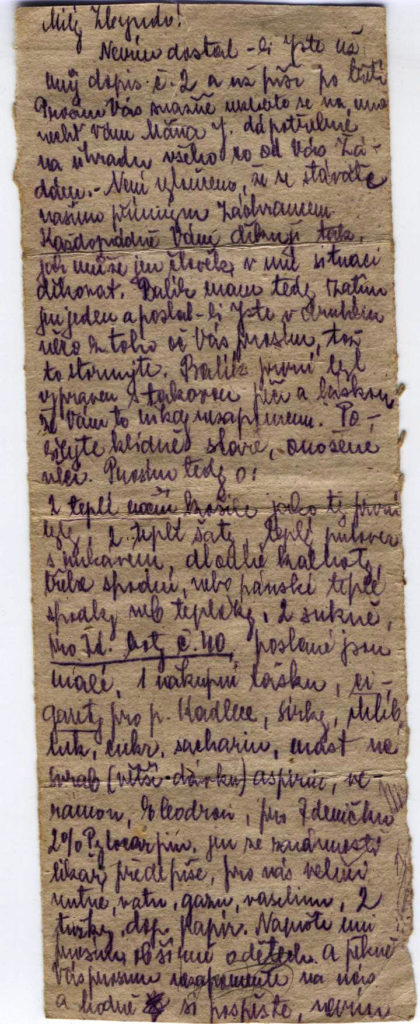 Milý Zbyndo!
Nevím dostal-li jste už
můj dopis č. 2 a už píši po třetí
Prosím Vás snažně nechť se na mne
nechť Vám Máňa J. dá potřebné
na úhradu všeho co od Vás žá-
dám.- Není vyloučeno, že se stáváte
naším přímým zachráncem.
Každopádně Vám děkuji tak,
jak může jen člověk v mé situaci
děkovat. Balík mám tedy zatím
jen jeden a poslal-li jste v druhém
něco z toho oč Vás prosím, tož
to stornujte. Balík první byl
vypraven s takovou péčí a láskou
že Vám to nikdy nezapomenu. Po-
sílejte klidně staré, obnošené
věci. Prosím tedy o:
2 teplé noční košile jako ty první
byly, 2 teplé šaty, teplý pulover
s rukávem, dlouhé kalhoty,
třeba spodní, nebo pánské teplé
spodky neb tepláky, 2 sukně,
pro Zd. boty č. 40, poslané jsou
malé, 1 nákupní tašku, ci-
garety pro p. Kadlece, sirky, chléb
tuk, cukr, sacharin, mast na
svrab (větší dávku) aspirin, ve-
ramon, Eleodron, pro Zdeničku
2% Pylocarpin, jen ze známosti
lékař předepíše, pro nás velmi
nutné, vatu, gazu, vaselinu, 2
tužky, dop. papír. Napište mi
prosím obšírně o dětech. A pěkně
Vás prosím nezapomeňte na nás
a hodně si pospěšte, nevím